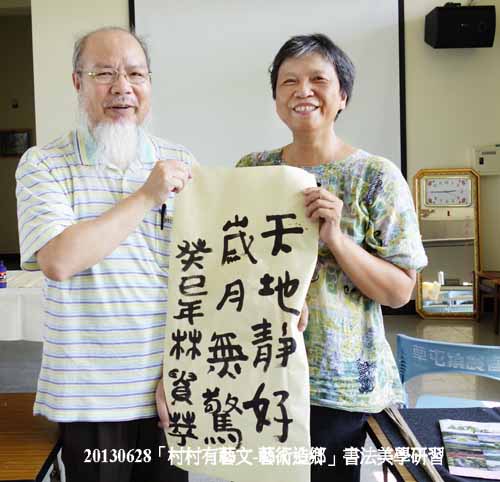 天地靜好
歲月無驚
癸巳年林賀葶
20130628「村村有藝文-藝術造鄉」書法美學研習